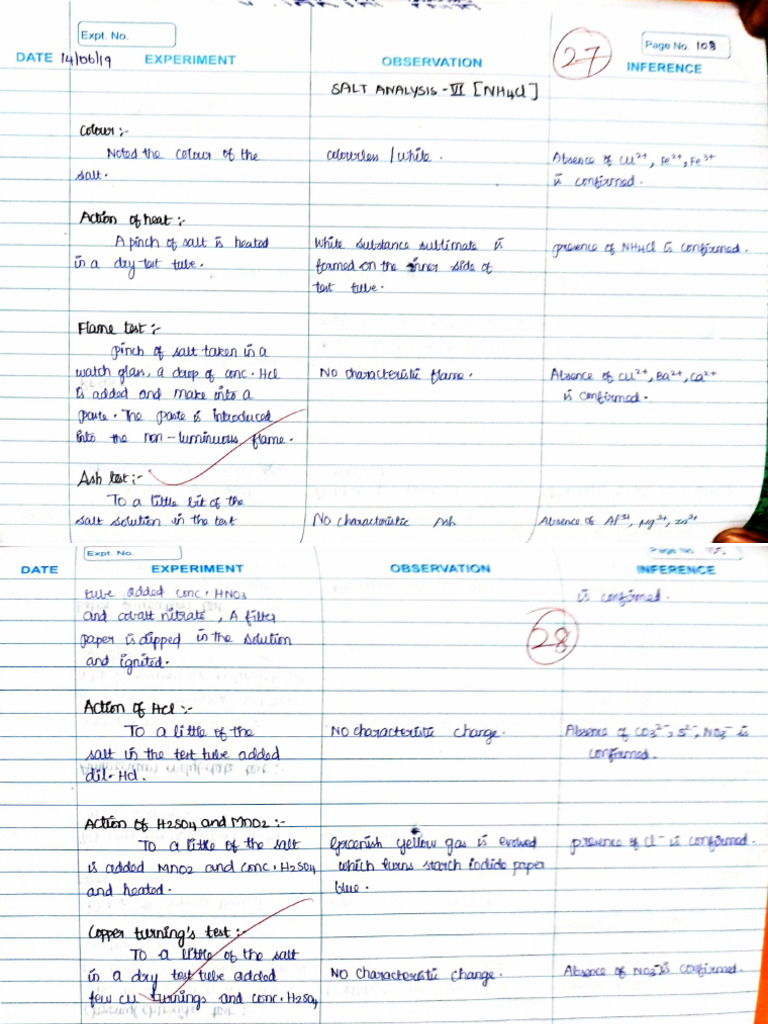 Expt. No.
27
Page No. 108
DATE 14/06/19 EXPERIMENT OBSERVATION INFERENCE
SALT ANALYSIS - VI [NH4Cl]
Colour :-
Noted the colour of the colourless / white. Absence of Cu2+, Fe2+, Fe3+
salt. is confirmed.
Action of heat :-
A pinch of salt is heated White substance sublimate is presence of NH4Cl is confirmed.
in a dry test tube. formed on the inner side of
test tube.
Flame test :-
pinch of salt taken in a
watch glass, a drop of conc. Hcl No characteristic flame. Absence of Cu2+, Ba2+, Ca2+
is added and make into a is confirmed.
paste. The paste is introduced
into the non-luminous flame.
Ash test :-
To a little bit of the
salt solution in the test No characteristic Ash Absence of Al3+, Mg2+, Zn2+
Expt. No. Page No.
DATE EXPERIMENT OBSERVATION INFERENCE
tube added conc. HNO3 is confirmed.
and cobalt nitrate, A filter
28
paper is dipped in the solution
and ignited.
Action of Hcl :-
To a little of the No characteristic change. Absence of CO32-, S2-, NO3- is
salt in the test tube added confirmed.
dil. Hcl.
Action of H2SO4 and MnO2 :-
To a little of the salt Greenish yellow gas is evolved presence of Cl- is confirmed.
is added MnO2 and conc. H2SO4 which turns starch iodide paper
and heated. blue.
Copper turning's test :-
To a little of the salt
in a dry test tube added No characteristic change. Absence of NO3- is confirmed.
few cu turnings and conc. H2SO4